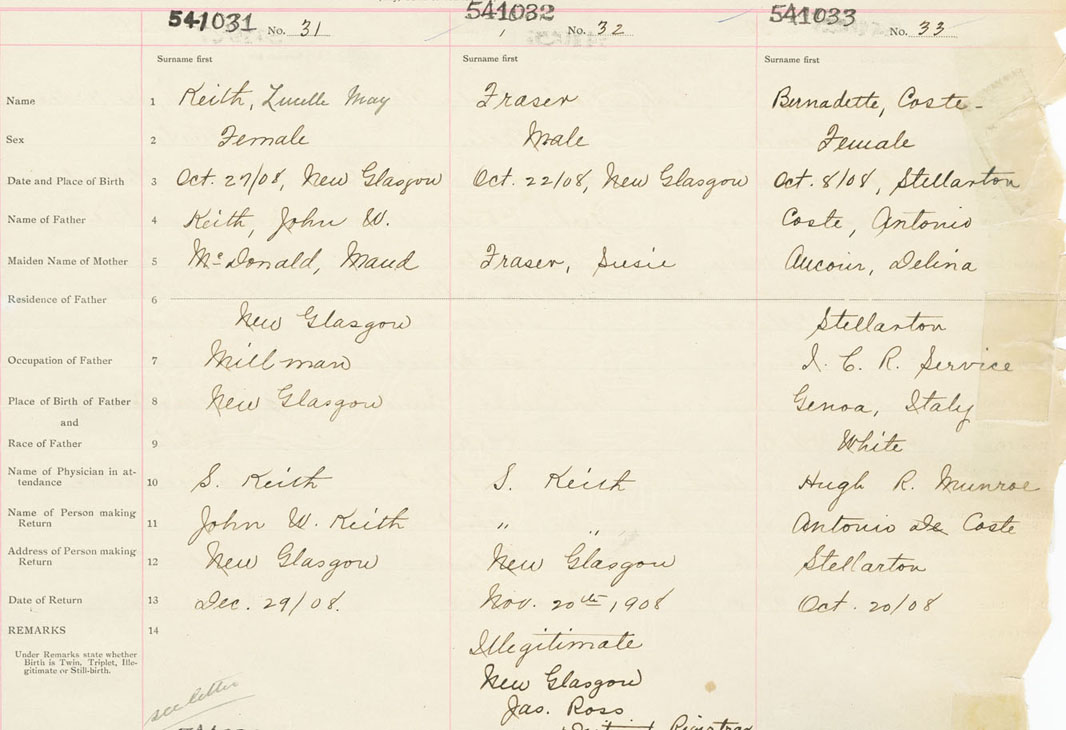 541031 No. 31 541032 No. 32 541033 No. 33
Surname first Surname first Surname first
Name 1 Keith, Lucelle May Fraser Bernadette, Coste-
Sex 2 Female Male Female
Date and Place of Birth 3 Oct. 27/08, New Glasgow Oct. 22/08, New Glasgow Oct. 8/08, Stellarton
Name of Father 4 Keith, John W. Coste, Antonio
Maiden Name of Mother 5 McDonald, Maud Fraser, Susie Aucour, Delina
Residence of Father 6
New Glasgow Stellarton
Occupation of Father 7 Millman I. C. R. Service
Place of Birth of Father 8 New Glasgow Genoa, Italy
and
Race of Father 9 White
Name of Physician in at-
tendance 10 S. Keith S. Keith Hugh R. Munroe
Name of Person making
Return 11 John W. Keith " " Antonio De Coste
Address of Person making
Return 12 New Glasgow New Glasgow Stellarton
Date of Return 13 Dec. 29/08. Nov. 20th, 1908 Oct. 20/08
REMARKS 14 Illegitimate
Under Remarks state whether
Birth is Twin, Triplet, Ille-
gitimate or Still-birth.
New Glasgow
see letter
Jas. Ross
Registrar